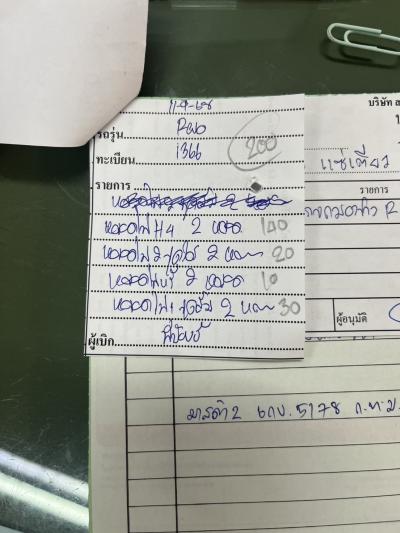 11-9-68
รถรุ่น Revo
ทะเบียน 1366 200
รายการ
หลอดไฟ H4 2 หลอด 140
หลอดไฟ 2 จุดใส 2 หลอด 20
หลอดไฟหรี่ 2 หลอด 10
หลอดไฟ 1 จุดส้ม 2 หลอด 30
ผู้เบิก
บริษัท ส
แซ่เตียว
รายการ
R
ผู้อนุมัติ
มารติ2 6กข.5178 ก.ท.ม.